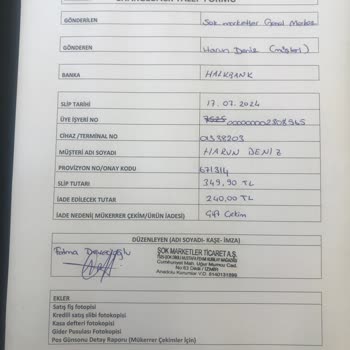 GÖNDERİLEN Şok marketler Genel Merkez
GÖNDEREN Harun Deniz (müşteri)
BANKA HALKBANK
SLİP TARİHİ 17.07.2024
ÜYE İŞYERİ NO
CİHAZ /TERMİNAL NO 01538203
MÜŞTERİ ADI SOYADI HARUN DENİZ
PROVİZYON NO/ONAY KODU 671314
SLİP TUTARI 349,90 TL
İADE EDİLECEK TUTAR 240,00 TL
İADE NEDENİ( MÜKERRER ÇEKİM/ÜRÜN İADESİ) Çift Çekim
DÜZENLEYEN (ADI SOYADI- KAŞE- İMZA)
Fatma
ŞOK MARKETLER TİCARET A.Ş.
Cumhuriyet Mah. Uğur Mumcu Cad.
İZMİR
Anadolu Kurumlar V.D. 8140131595
EKLER
Satış fiş fotopisi
Kredili satış slibi fotokopisi
Kasa defteri fotokopisi
Gider Pusulası Fotokopisi
Pos Günsonu Detay Raporu (Mükerrer Çekimler İçin)